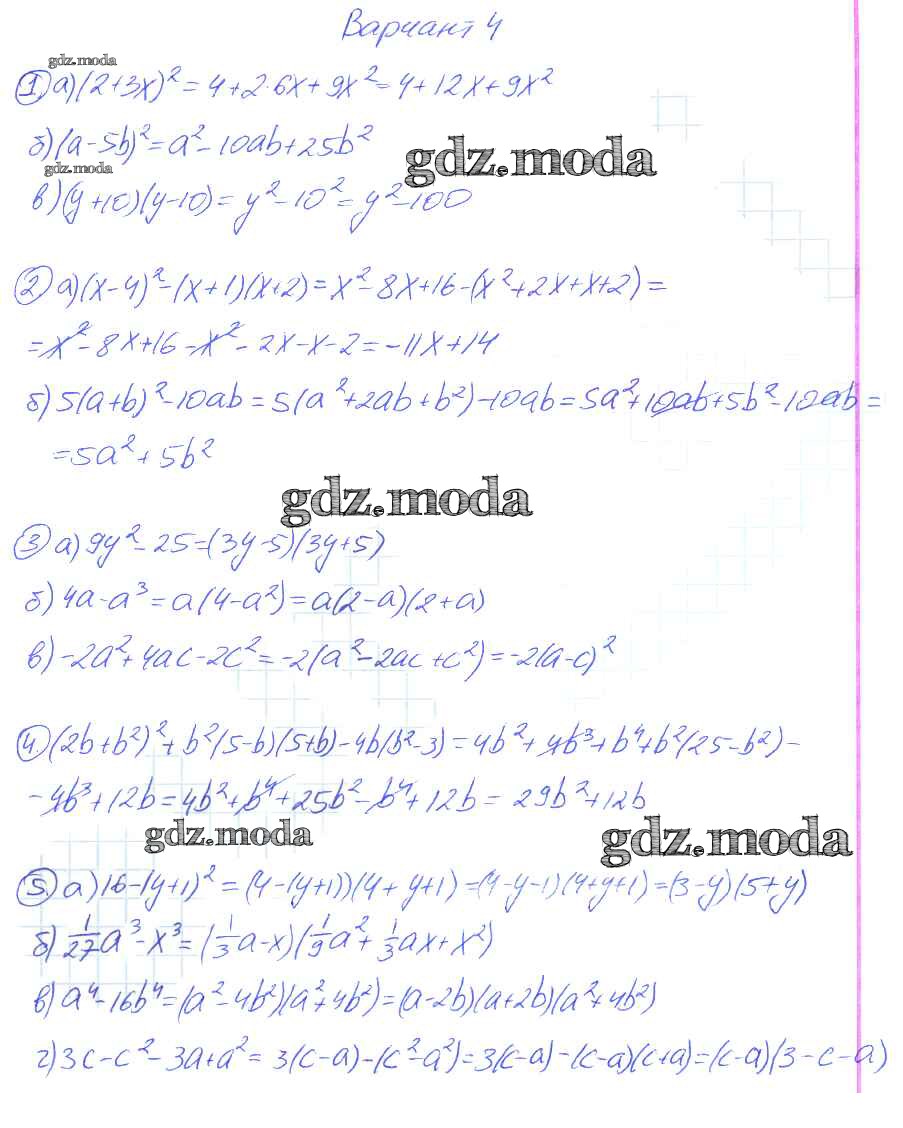 Вариант 4
gdz.moda
① а) (2+3x)² = 4+2·6x+9x² = 4+12x+9x²
б) (a-5b)² = a²-10ab+25b²
gdz.moda
gdz.moda
в) (y+10)(y-10) = y²-10² = y²-100
② а) (x-4)²-(x+1)(x+2) = x²-8x+16-(x²+2x+x+2) =
= x²-8x+16-x²-2x-x-2 = -11x+14
б) 5(a+b)²-10ab = 5(a²+2ab+b²)-10ab = 5a²+10ab+5b²-10ab =
= 5a²+5b²
gdz.moda
③ а) 9y²-25 = (3y-5)(3y+5)
б) 4a-a³ = a(4-a²) = a(2-a)(2+a)
в) -2a²+4ac-2c² = -2(a²-2ac+c²) = -2(a-c)²
④ (2b+b²)²+b²(5-b)(5+b)-4b(b²-3) = 4b²+4b³+b⁴+b²(25-b²)-
-4b³+12b = 4b²+b⁴+25b²-b⁴+12b = 29b²+12b
gdz.moda
gdz.moda
⑤ а) 16-(y+1)² = (4-(y+1))(4+y+1) = (4-y-1)(4+y+1) = (3-y)(5+y)
б) 1/27a³-x³ = (1/3a-x)(1/9a²+1/3ax+x²)
в) a⁴-16b⁴ = (a²-4b²)(a²+4b²) = (a-2b)(a+2b)(a²+4b²)
г) 3c-c²-3a+a² = 3(c-a)-(c²-a²) = 3(c-a)-(c-a)(c+a) = (c-a)(3-c-a)